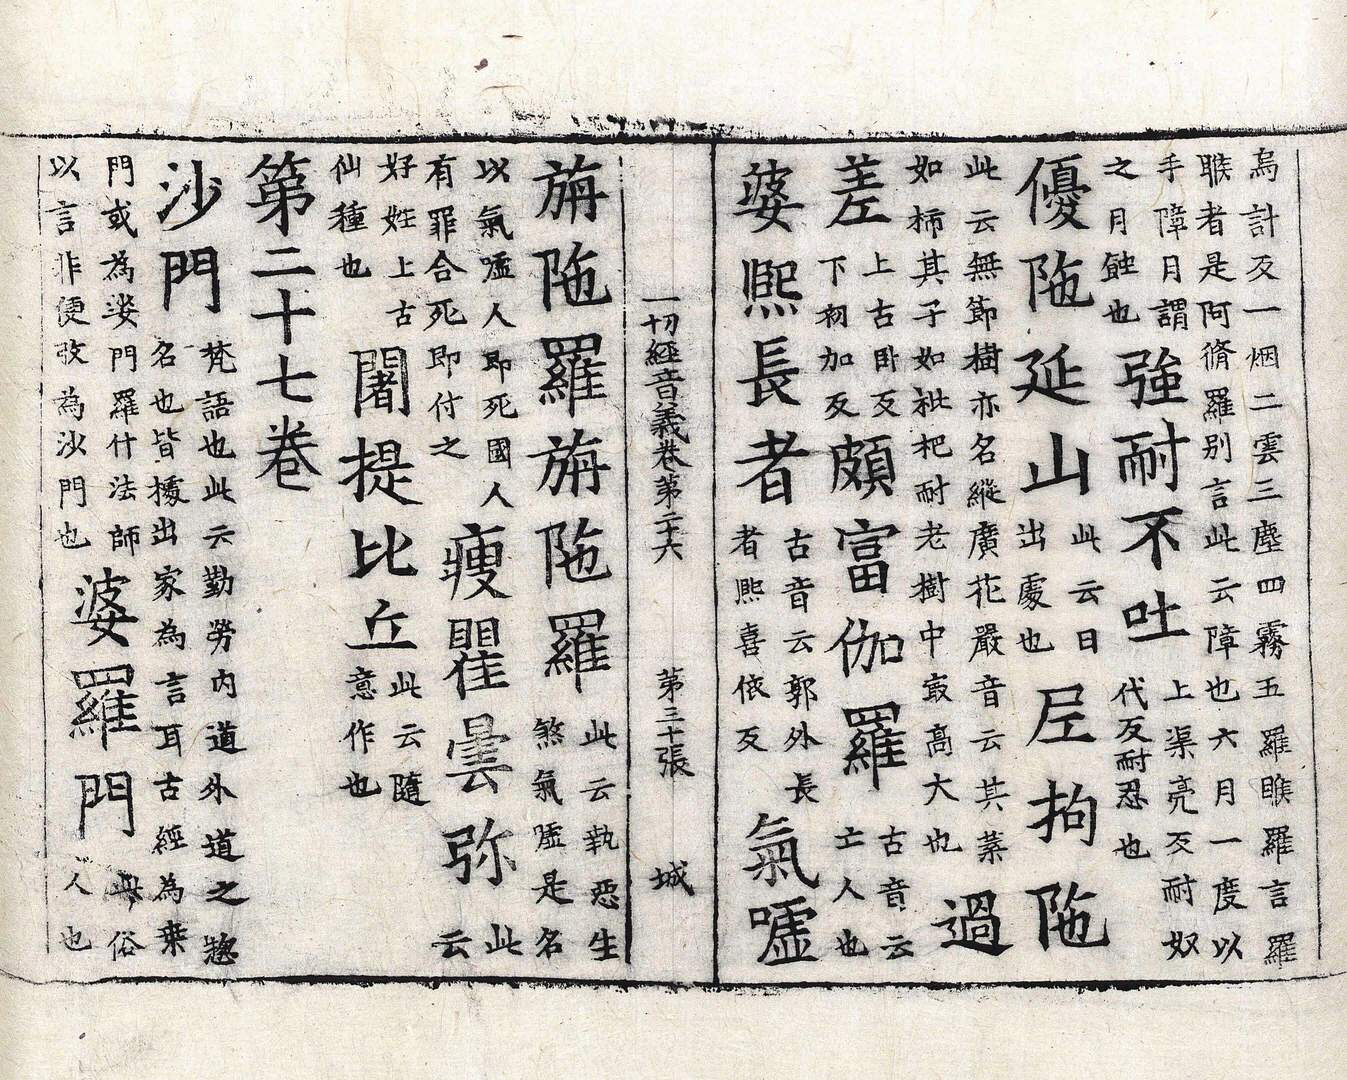 烏計反一烟二雲三塵四霧五羅睺羅言羅
睺者是阿脩羅別言此云障也六月一度以
手障月謂
之月蝕也
強耐不吐
上渠亮反耐奴
代反耐忍也
尼拘陁
此云無節樹亦名縱廣花嚴音云其葉
如柿其子如枇杷耐老樹中㝡高大也
優陁延山
此云日
出處也
過
差
上古卧反
下初加反
頗富伽羅
古音云
士人也
婆熙長者
古音云郭外長
者熙喜依反
氣嘘
一切經音義卷第二十六 第三十張 城
旃陁羅旃陁羅
此云執惡生
煞氣嘘是名
以氣嘘人即死國人
有罪合死即付之
瘦瞿曇弥
此
云
好姓上古
仙種也
闍提比丘
此云隨
意作也
第二十七卷
沙門
梵語也此云勤勞內道外道之惣
名也皆據出家為言耳古經為桒
門或為娑門羅什法師
以言非便改為沙門也
婆羅門
此俗
人也